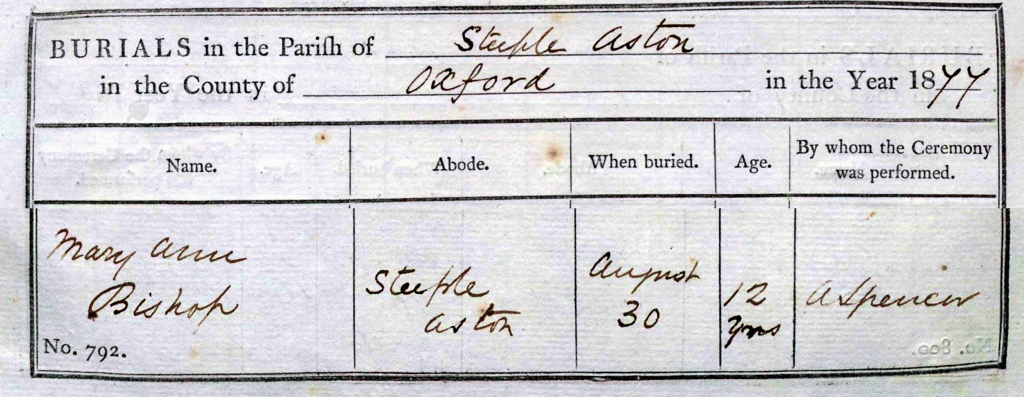 BURIALS in the Pariſh of Steeple Aston
in the County of Oxford in the Year 1877
Name. Abode. When buried. Age. By whom the Ceremony was performed.
Mary Ann
Bishop
No. 792.
Steeple
Aston
August
30
12
yrs
A Spencer
No. 800.